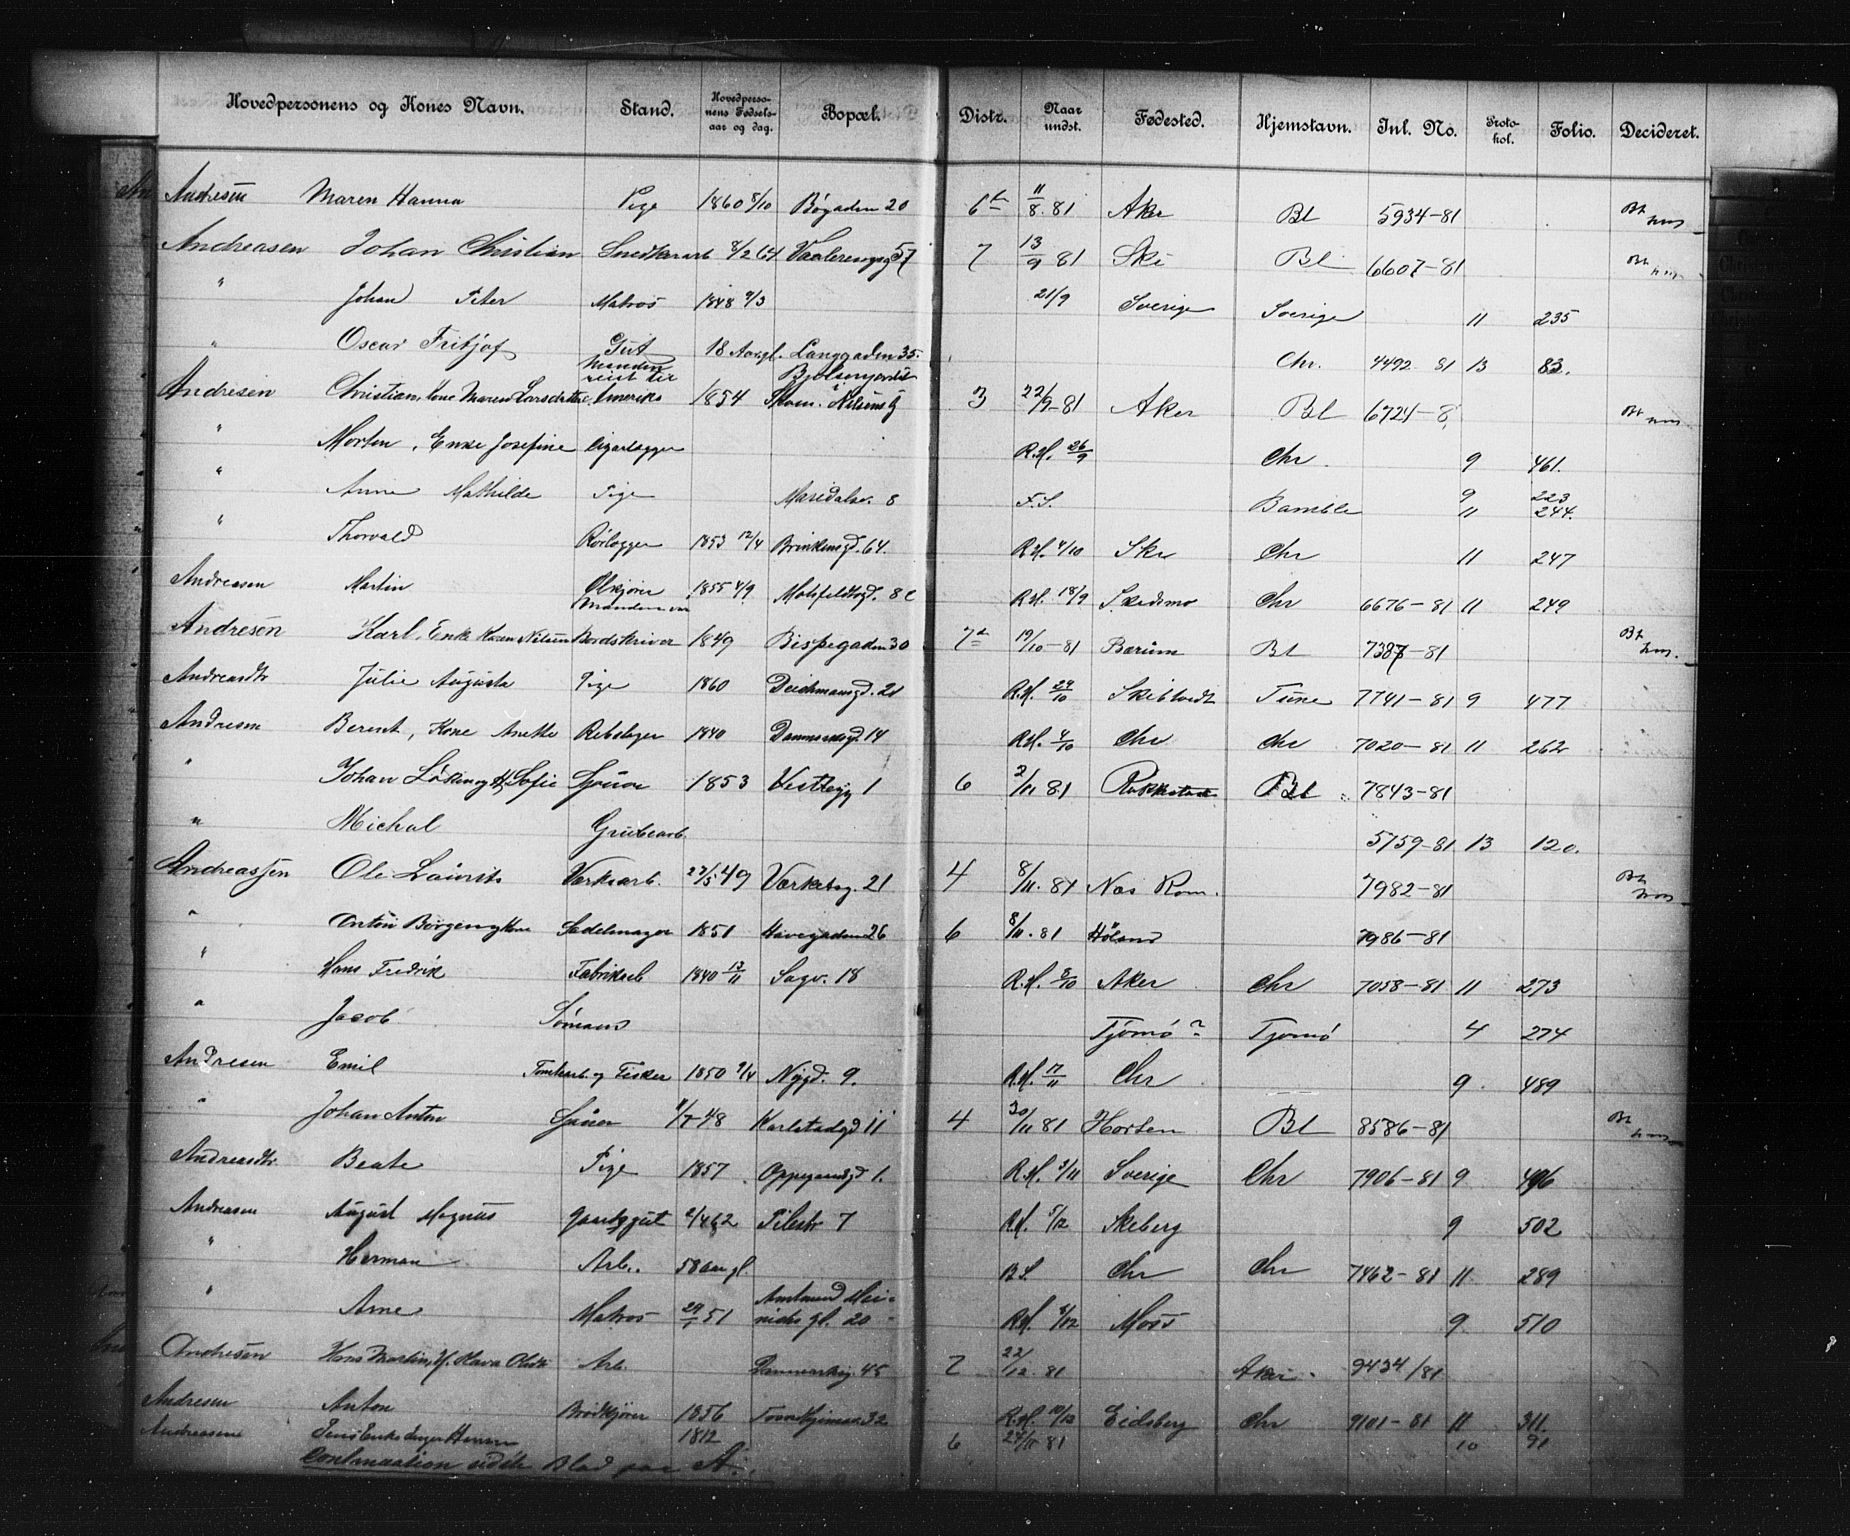 Hovedpersonens og Kones Navn. Stand. Hovedpersonens Fødselsaar og dag. Bopæl. Distr. Naar undst. Fødested. Hjemstavn. Inl. No. Protokol. Folio. Decideret.
Andresen Maren Hanna Pige 1860 8/10 Bøgaden 20 6 11/8. 81 Aker Bl 5934-81
Andreasen Johan Christian Snedkerarb 8/2 64 Vaalerengsg 57 7 13/9 81 Ski Bl 6607-81
" Johan Peter Matros 1848 9/3 21/9 Sverige Sverige 11 235
" Oscar Fritjof Gut 18 Aar gl. Langgaden 35. Chr. 4492 81 13 83.
Andresen Christian, Kone Maren Larsdatter Manden reist til Amerika 1854 3 22/9-81 Aker Bl 6724-8
" Morten, Enke Josefine Cigarlægger R.H. 26/9 Chr. 9 461.
" Anne Mathilde Pige Maridalsv. 8 F.S. Bamble 9 11 223 244.
" Thorvald Rørlægger 1853 12/4 Brinkensgd. 64. R.H. 4/10 Ski Chr 11 247
Andreasen Martin Ølkjører 1855 4/9 Motzfeldtsgd. 8 c R.H. 18/9 Skedsmo Chr 6676-81 11 249
Andresen Karl, Enke Karen Nilsen Manden var Bordskriver 1849 Bispegaden 30 7 19/10-81 Bærum Bl 7387-81
Andreasdtr Julie Augusta Pige 1860 Deichmansgd. 21 R.H. 24/10 Skibtvedt Tune 7741-81 9 477
Andresen Berent, Kone Anette Rebslager 1840 Danmarksgd. 14 R.H. 4/10 Chr Chr 7020-81 11 262
" Johan Sofie 1853 1 6 2/11 81 Rakkestad Bl 7843-81
" Michal Grubearb. 5759-81 13 120.
Andreassen Ole Laurits Værksarb. 27/5 49 Værkstsg. 21 4 8/11. 81 Nes Rom. 7982-81
" Anton Børgen og Kone Sadelmager 1851 Havegaden 26 6 8/11. 81 Høland 7986-81
" Hans Fredrik Fabrikarb 1840 13/11 Sagv. 18 R.H. 5/10 Aker Chr 7058-81 11 273
" Jacob Sømand Tjømø ? Tjømø 4 274
Andresen Emil Tomtearb. og Fisker 1850 9/4 Nygd. 9. R.H. 17/11 Chr 9 489
" Johan Anton 11/7-48 Karlstadgd 11 4 30/11 81 Horten Bl 8586-81
Andreasdtr Beate Pige 1857 Oppegaardsgd 1. R.H. 3/11 Sverige Chr 7906-81 9 496
Andreasen August Magnus Gaardsgut 2/4 62 Pilestr 7 R.H. 5/12 Skeberg 9 502
" Herman Arb. 58 Aar gl. B.S. Chr Chr 7462-81 11 289
" Arne Matros 29/1 51 Amtmand Meinichs gd. 20 R.H. 8/12 Moss 9. 510
Andresen Hans Martin, H. Olava Olsdt Arb. Danmarksg. 45 7 22/12 81 Aker 9434/81
Andresen Anton Brødkjører 1856 Trondhjemsv. 32 R.H. 10/12 Eidsberg Chr 9101-81 11 311.
Andreasens Jens Enke Inger Hansen 1812 6 81 10 91
Continuation sidste Blad paa A.